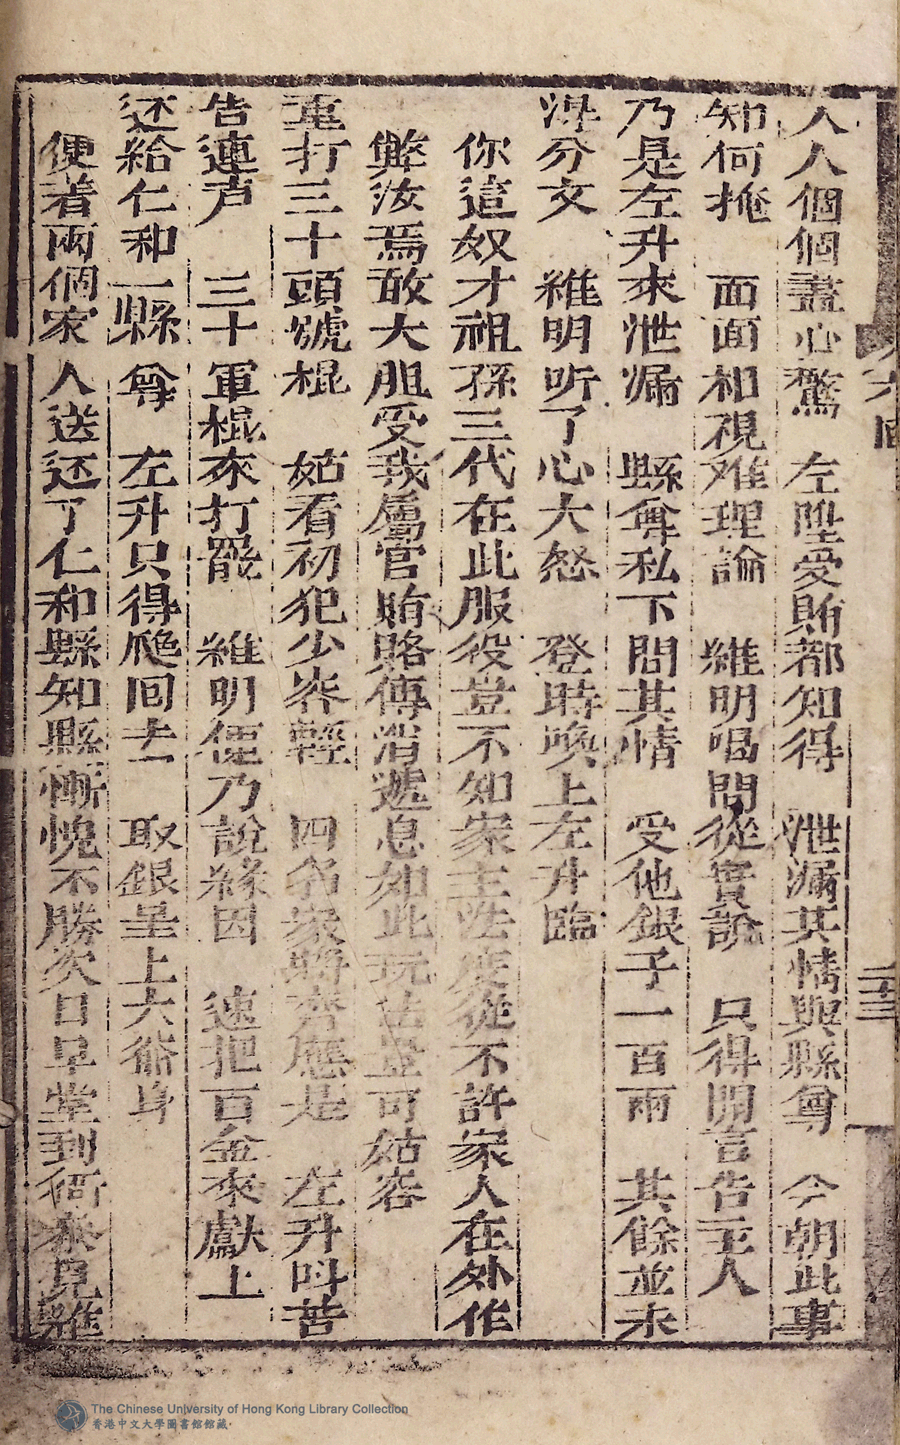 人人個個盡心驚　左陞受賄都知得　泄漏其情與縣尊　今朝此事
知何掩　面面相視难理論　維明喝問從實說　只得開言告主人
乃是左升來泄漏　縣尊私下問其情　受他銀子一百兩　其餘並未
淂分文　維明听了心大怒　登時喚上左升臨
你這奴才祖孫三代在此服役豈不知家主法度從不許家人在外作
弊汝焉敢大胆受我屬官賄賂傳消遞息如此玩法豈可姑容
重打三十頭號棍　姑看初犯少容輕　四名家將齊應是　左升呌苦
告連声　三十軍棍來打罷　維明便乃說緣因　速把百金來獻上
还給仁和一縣尊　左升只得爬囘去　取銀呈上大衙身
便着兩個家人送还了仁和縣知縣慚愧不勝次日早堂到衙泰見維
六囬
二十三
The Chinese University of Hong Kong Library Collection
香港中文大學圖書館館藏